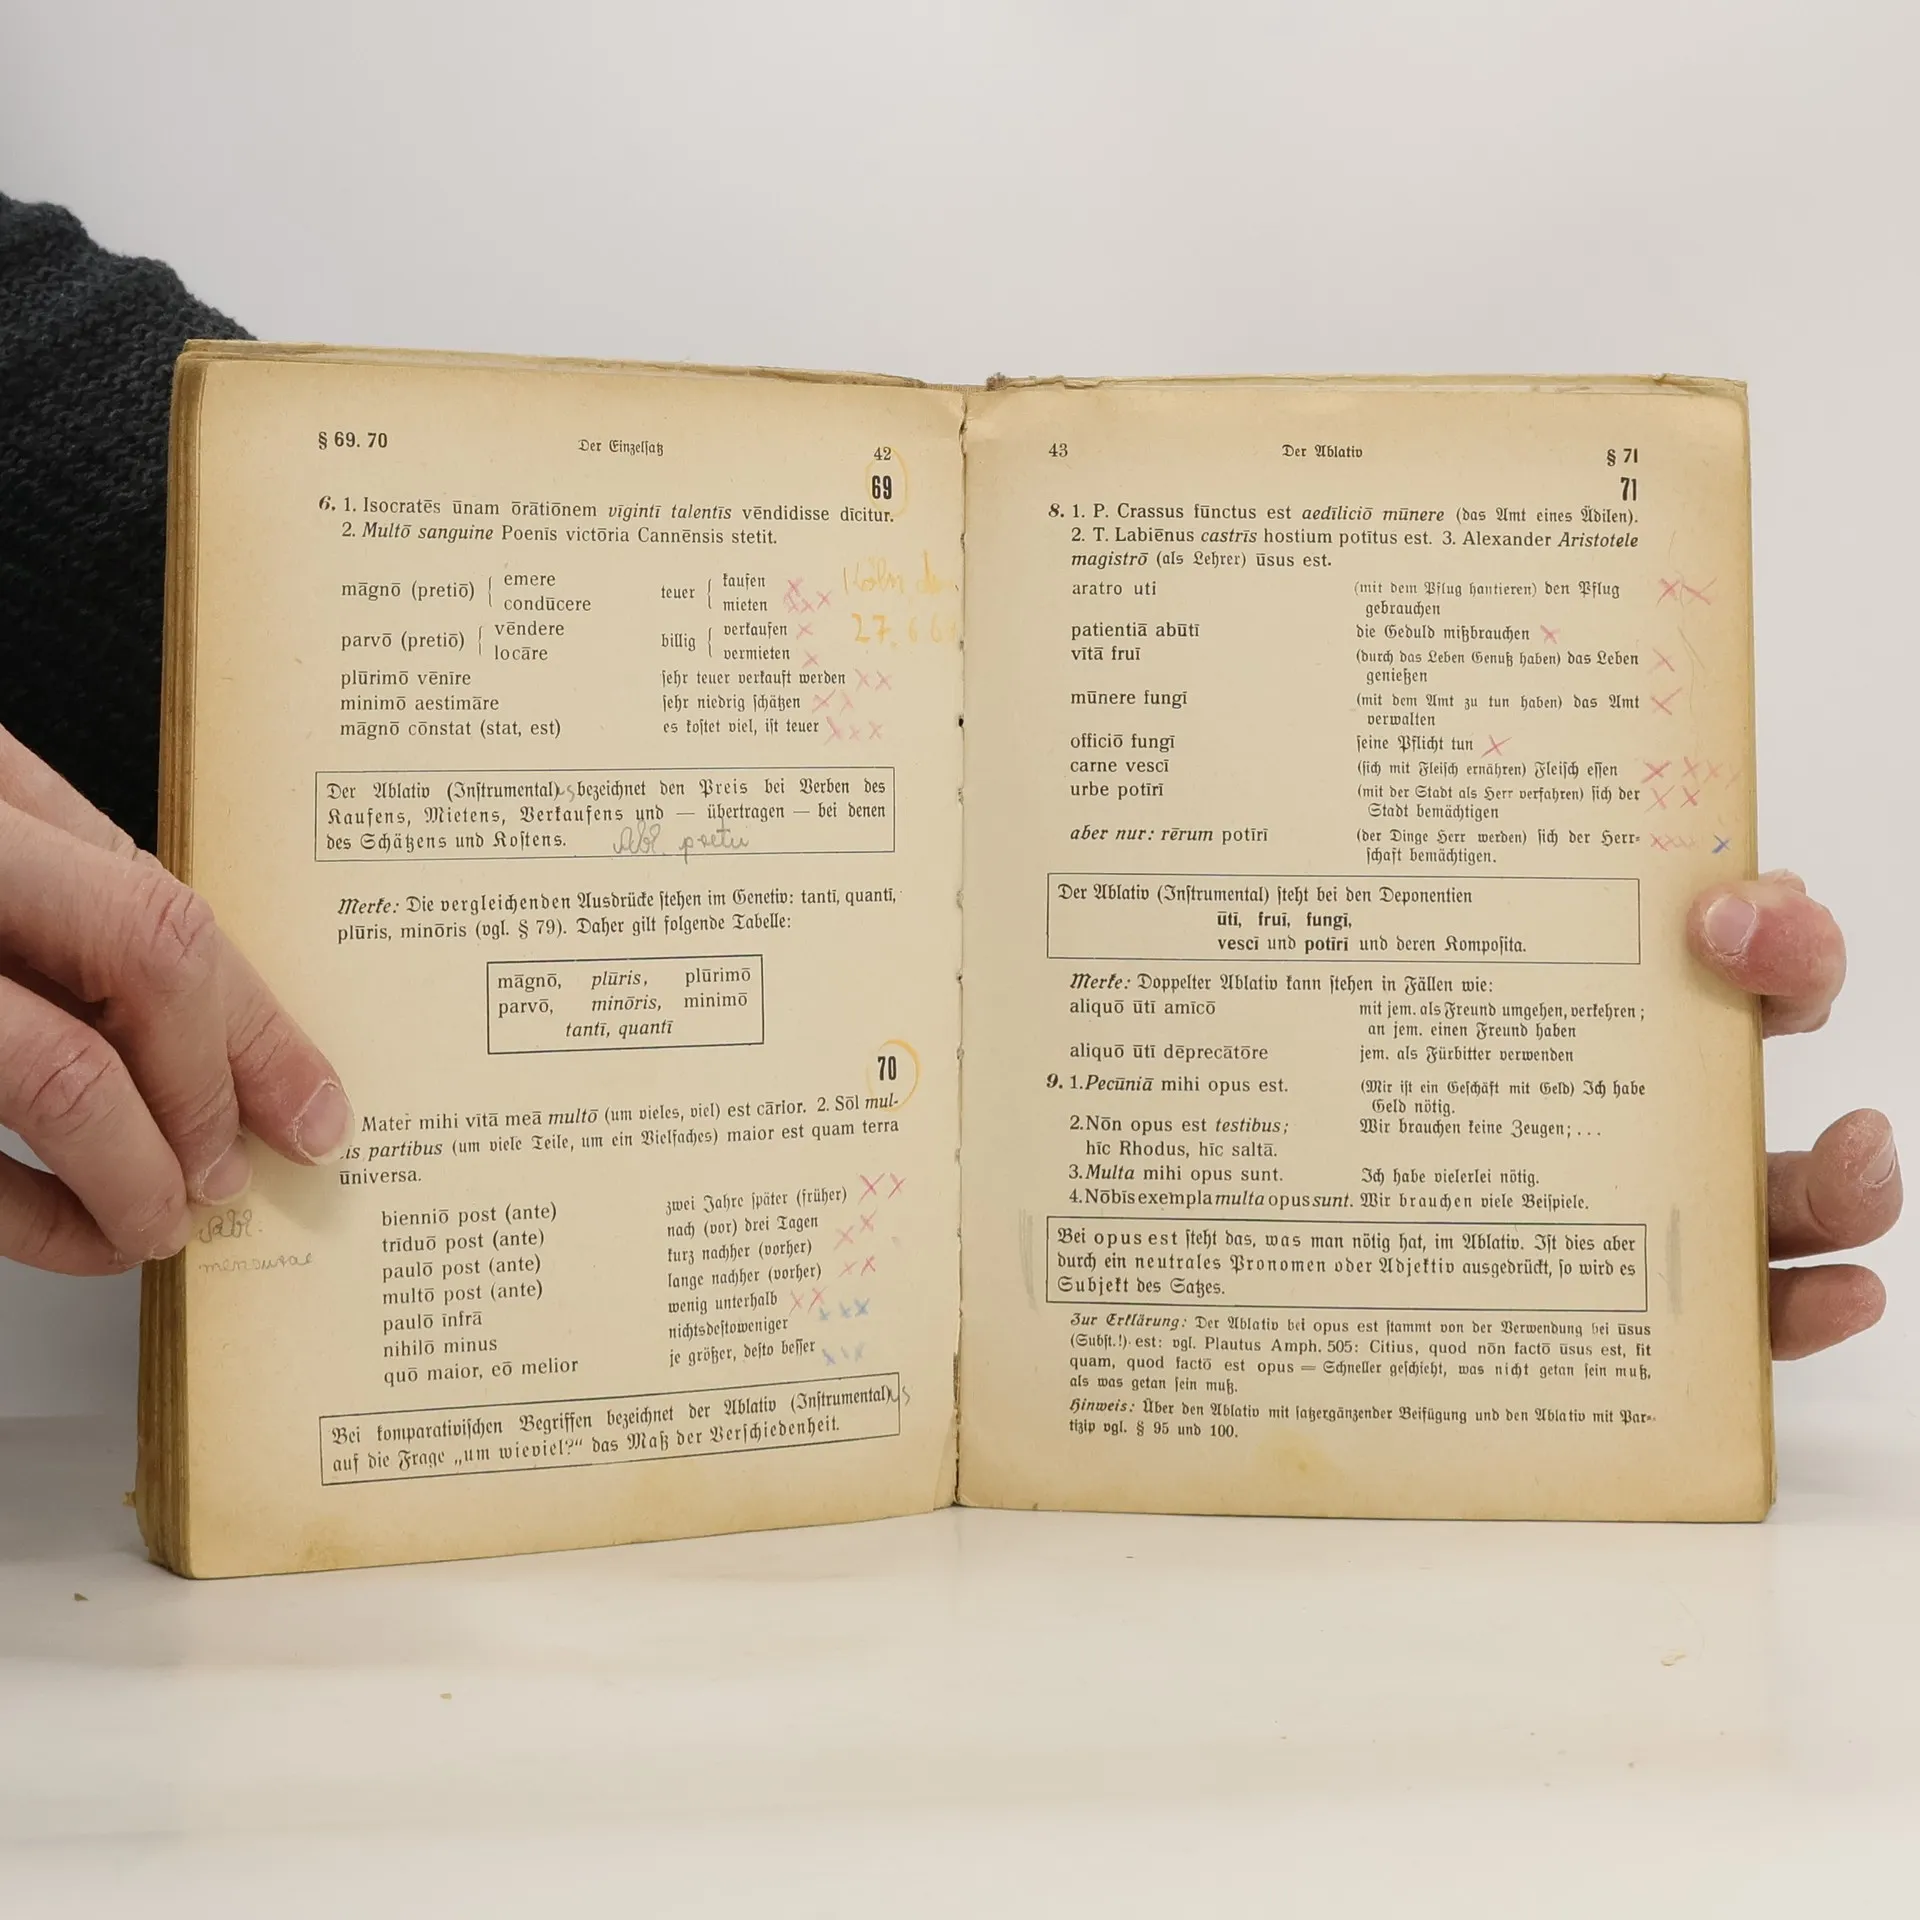 § 69. 70 Der Einzelſatz 42
69
6. 1. Isocratēs ūnam ōrātiōnem vīgintī talentīs vēndidisse dīcitur.
2. Multō sanguine Poenīs victōria Cannēnsis stetit.
māgnō (pretiō) { emere teuer { kaufen
condūcere mieten
Köln den
parvō (pretiō) { vēndere billig { verkaufen
locāre vermieten
27. 6
plūrimō vēnīre ſehr teuer verkauft werden
minimō aestimāre ſehr niedrig ſchätzen
māgnō cōnstat (stat, est) es koſtet viel, iſt teuer
Der Ablativ (Inſtrumental) bezeichnet den Preis bei Verben des
Kaufens, Mietens, Verkaufens und — übertragen — bei denen
des Schätzens und Koſtens. Abl. pretii
Merke: Die vergleichenden Ausdrücke ſtehen im Genetiv: tantī, quantī,
plūris, minōris (vgl. § 79). Daher gilt folgende Tabelle:
māgnō, plūris, plūrimō
parvō, minōris, minimō
tantī, quantī
70
Mater mihi vītā meā multō (um vieles, viel) est cārior. 2. Sōl mul-
tīs partibus (um viele Teile, um ein Vielfaches) maior est quam terra
ūniversa.
Abl.
mensurae
bienniō post (ante) zwei Jahre ſpäter (früher)
trīduō post (ante) nach (vor) drei Tagen
paulō post (ante) kurz nachher (vorher)
multō post (ante) lange nachher (vorher)
paulō īnfrā wenig unterhalb
nihilō minus nichtsdeſtoweniger
quō maior, eō melior je größer, deſto beſſer
Bei komparativiſchen Begriffen bezeichnet der Ablativ (Inſtrumental)
auf die Frage „um wieviel?“ das Maß der Verſchiedenheit.
43 Der Ablativ § 71
71
8. 1. P. Crassus fūnctus est aedīliciō mūnere (das Amt eines Ädilen).
2. T. Labiēnus castrīs hostium potītus est. 3. Alexander Aristotele
magistrō (als Lehrer) ūsus est.
aratro uti (mit dem Pflug hantieren) den Pflug
gebrauchen
patientiā abūtī die Geduld mißbrauchen
vītā fruī (durch das Leben Genuß haben) das Leben
genießen
mūnere fungī (mit dem Amt zu tun haben) das Amt
verwalten
officiō fungī ſeine Pflicht tun
carne vescī (ſich mit Fleiſch ernähren) Fleiſch eſſen
urbe potīrī (mit der Stadt als Herr verfahren) ſich der
Stadt bemächtigen
aber nur: rērum potīrī (der Dinge Herr werden) ſich der Herr-
ſchaft bemächtigen.
Der Ablativ (Inſtrumental) ſteht bei den Deponentien
ūtī, fruī, fungī,
vescī und potīrī und deren Kompoſita.
Merke: Doppelter Ablativ kann ſtehen in Fällen wie:
aliquō ūtī amīcō mit jem. als Freund umgehen, verkehren;
an jem. einen Freund haben
aliquō ūtī dēprecātōre jem. als Fürbitter verwenden
9. 1. Pecūniā mihi opus est. (Mir iſt ein Geſchäft mit Geld) Ich habe
Geld nötig.
2. Nōn opus est testibus; Wir brauchen keine Zeugen; ...
hīc Rhodus, hīc saltā.
3. Multa mihi opus sunt. Ich habe vielerlei nötig.
4. Nōbīs exempla multa opus sunt. Wir brauchen viele Beiſpiele.
Bei opus est ſteht das, was man nötig hat, im Ablativ. Iſt dies aber
durch ein neutrales Pronomen oder Adjektiv ausgedrückt, ſo wird es
Subjekt des Satzes.
Zur Erklärung: Der Ablativ bei opus est ſtammt von der Verwendung bei ūsus
(Subſt.!) est: vgl. Plautus Amph. 505: Citius, quod nōn factō ūsus est, fit
quam, quod factō est opus = Schneller geſchieht, was nicht getan ſein muß,
als was getan ſein muß.
Hinweis: Über den Ablativ mit ſatzergänzender Beifügung und den Ablativ mit Par-
tizip vgl. § 95 und 100.